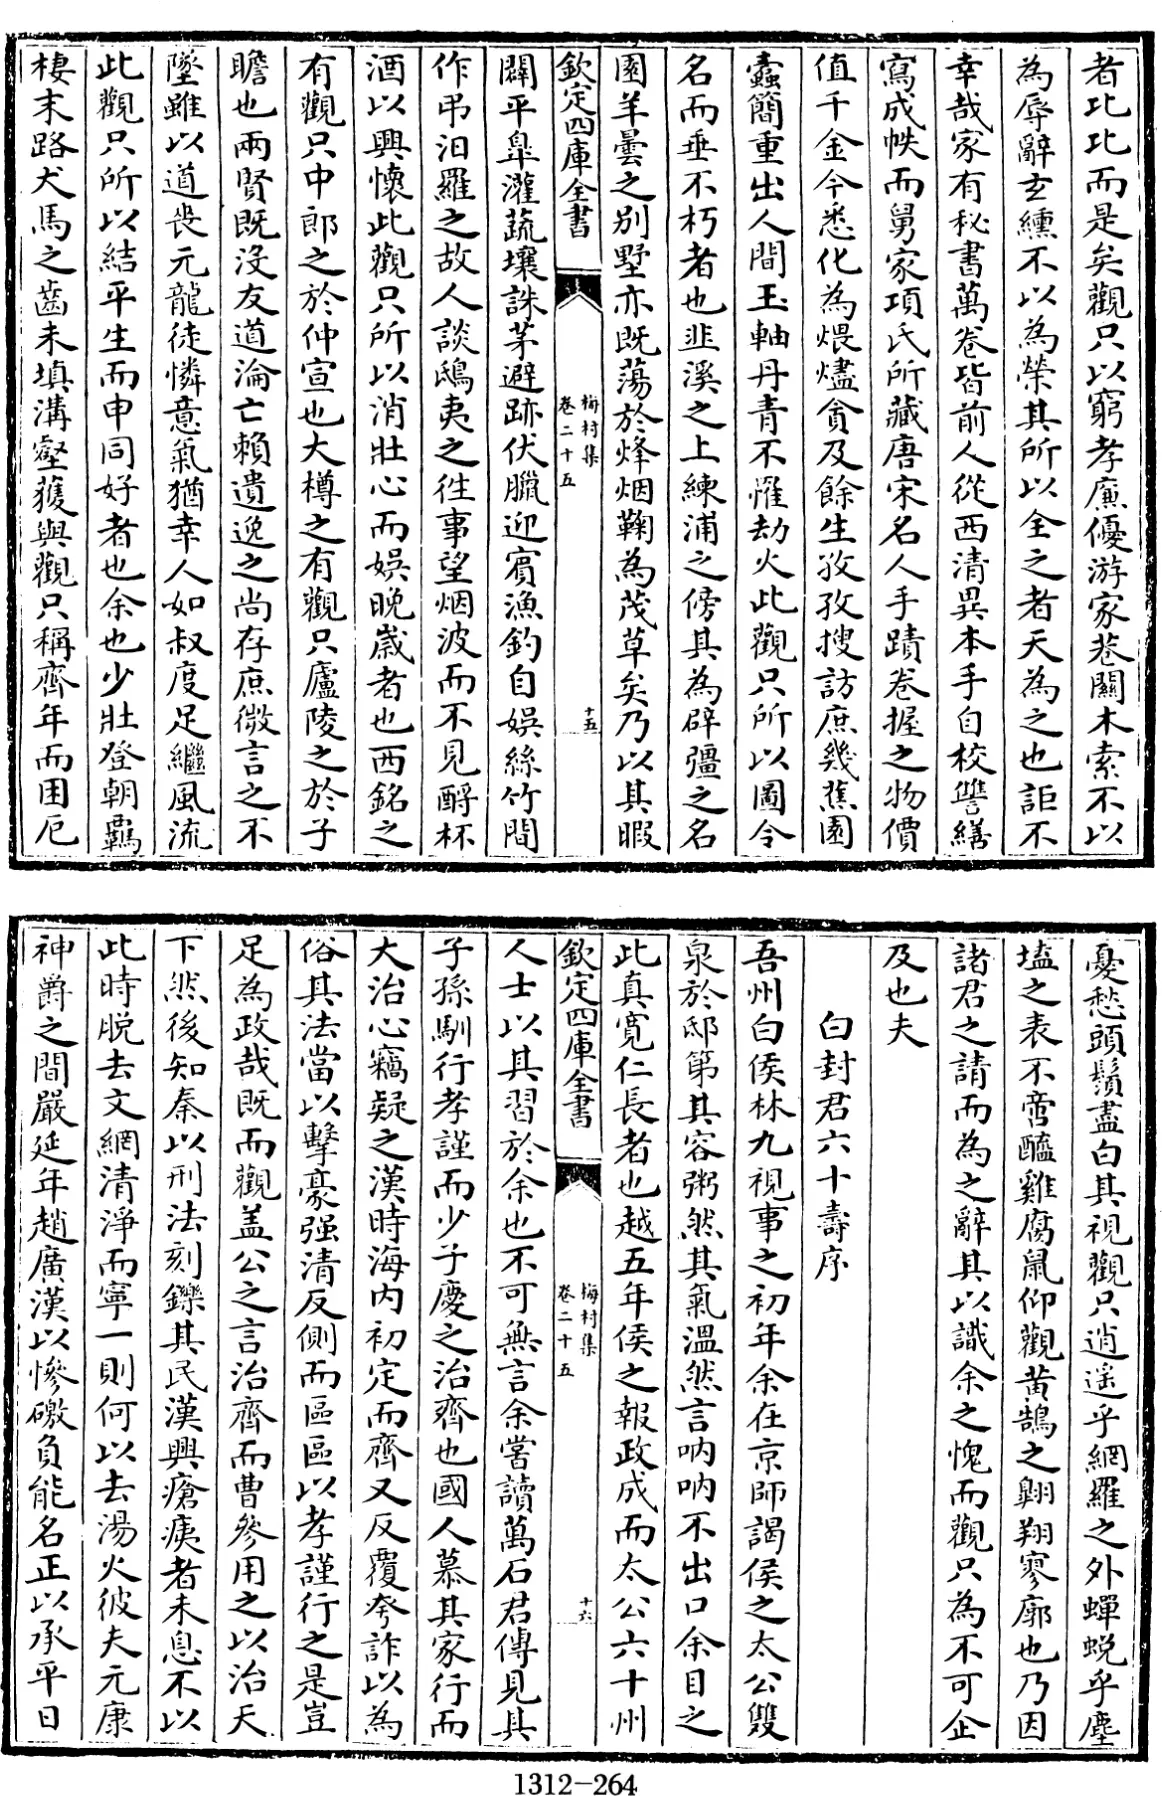 者比比而是矣觀只以窮孝廉優游家巷關木索不以
為辱辭玄纁不以為榮其所以全之者天為之也詎不
幸哉家有秘書萬卷皆前人從西清異本手自校讐繕
寫成帙而舅家項氏所藏唐宋名人手蹟卷握之物價
值千金今悉化為煨燼貪及餘生孜孜搜訪庶幾蕉園
蠹簡重出人間玉軸丹青不罹劫火此觀只所以圖令
名而垂不朽者也韭溪之上練浦之傍其為辟彊之名
園羊曇之別墅亦既蕩於烽烟鞠為茂草矣乃以其暇
欽定四庫全書
梅村集
卷二十五
十五
闢平臯灌蔬壤誅茅避跡伏臘迎賓漁釣自娛絲竹間
作弔汨羅之故人談鴟夷之往事望烟波而不見酹杯
酒以興懷此觀只所以消壯心而娛晚歲者也西銘之
有觀只中郎之於仲宣也大樽之有觀只廬陵之於子
瞻也兩賢既沒友道淪亡賴遺逸之尚存庶微言之不
墜雖以道喪元龍徒憐意氣猶幸人如叔度足繼風流
此觀只所以結平生而申同好者也余也少壯登朝羈
棲末路犬馬之齒未填溝壑獲與觀只稱齊年而困厄
憂愁頭鬚盡白其視觀只逍遥乎網羅之外蟬蛻乎塵
壒之表不啻醯雞腐鼠仰觀黃鵠之翺翔寥廓也乃因
諸君之請而為之辭其以識余之愧而觀只為不可企
及也夫
白封君六十壽序
吾州白侯林九視事之初年余在京師謁侯之太公雙
泉於邸第其容粥然其氣溫然言吶吶不出口余目之
此真寬仁長者也越五年侯之報政成而太公六十州
欽定四庫全書
梅村集
卷二十五
十六
人士以其習於余也不可無言余嘗讀萬石君傳見其
子孫馴行孝謹而少子慶之治齊也國人慕其家行而
大治心竊疑之漢時海內初定而齊又反覆夸詐以為
俗其法當以擊豪强清反側而區區以孝謹行之是豈
足為政哉既而觀盖公之言治齊而曹參用之以治天
下然後知秦以刑法刻鑠其民漢興瘡痍者未息不以
此時脫去文網清淨而寧一則何以去湯火彼夫元康
神爵之間嚴延年趙廣漢以慘礉負能名正以承平日
1312-264